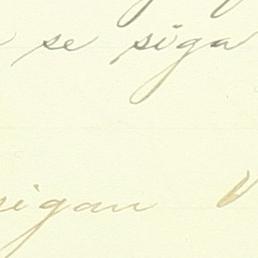 se siga
sigan